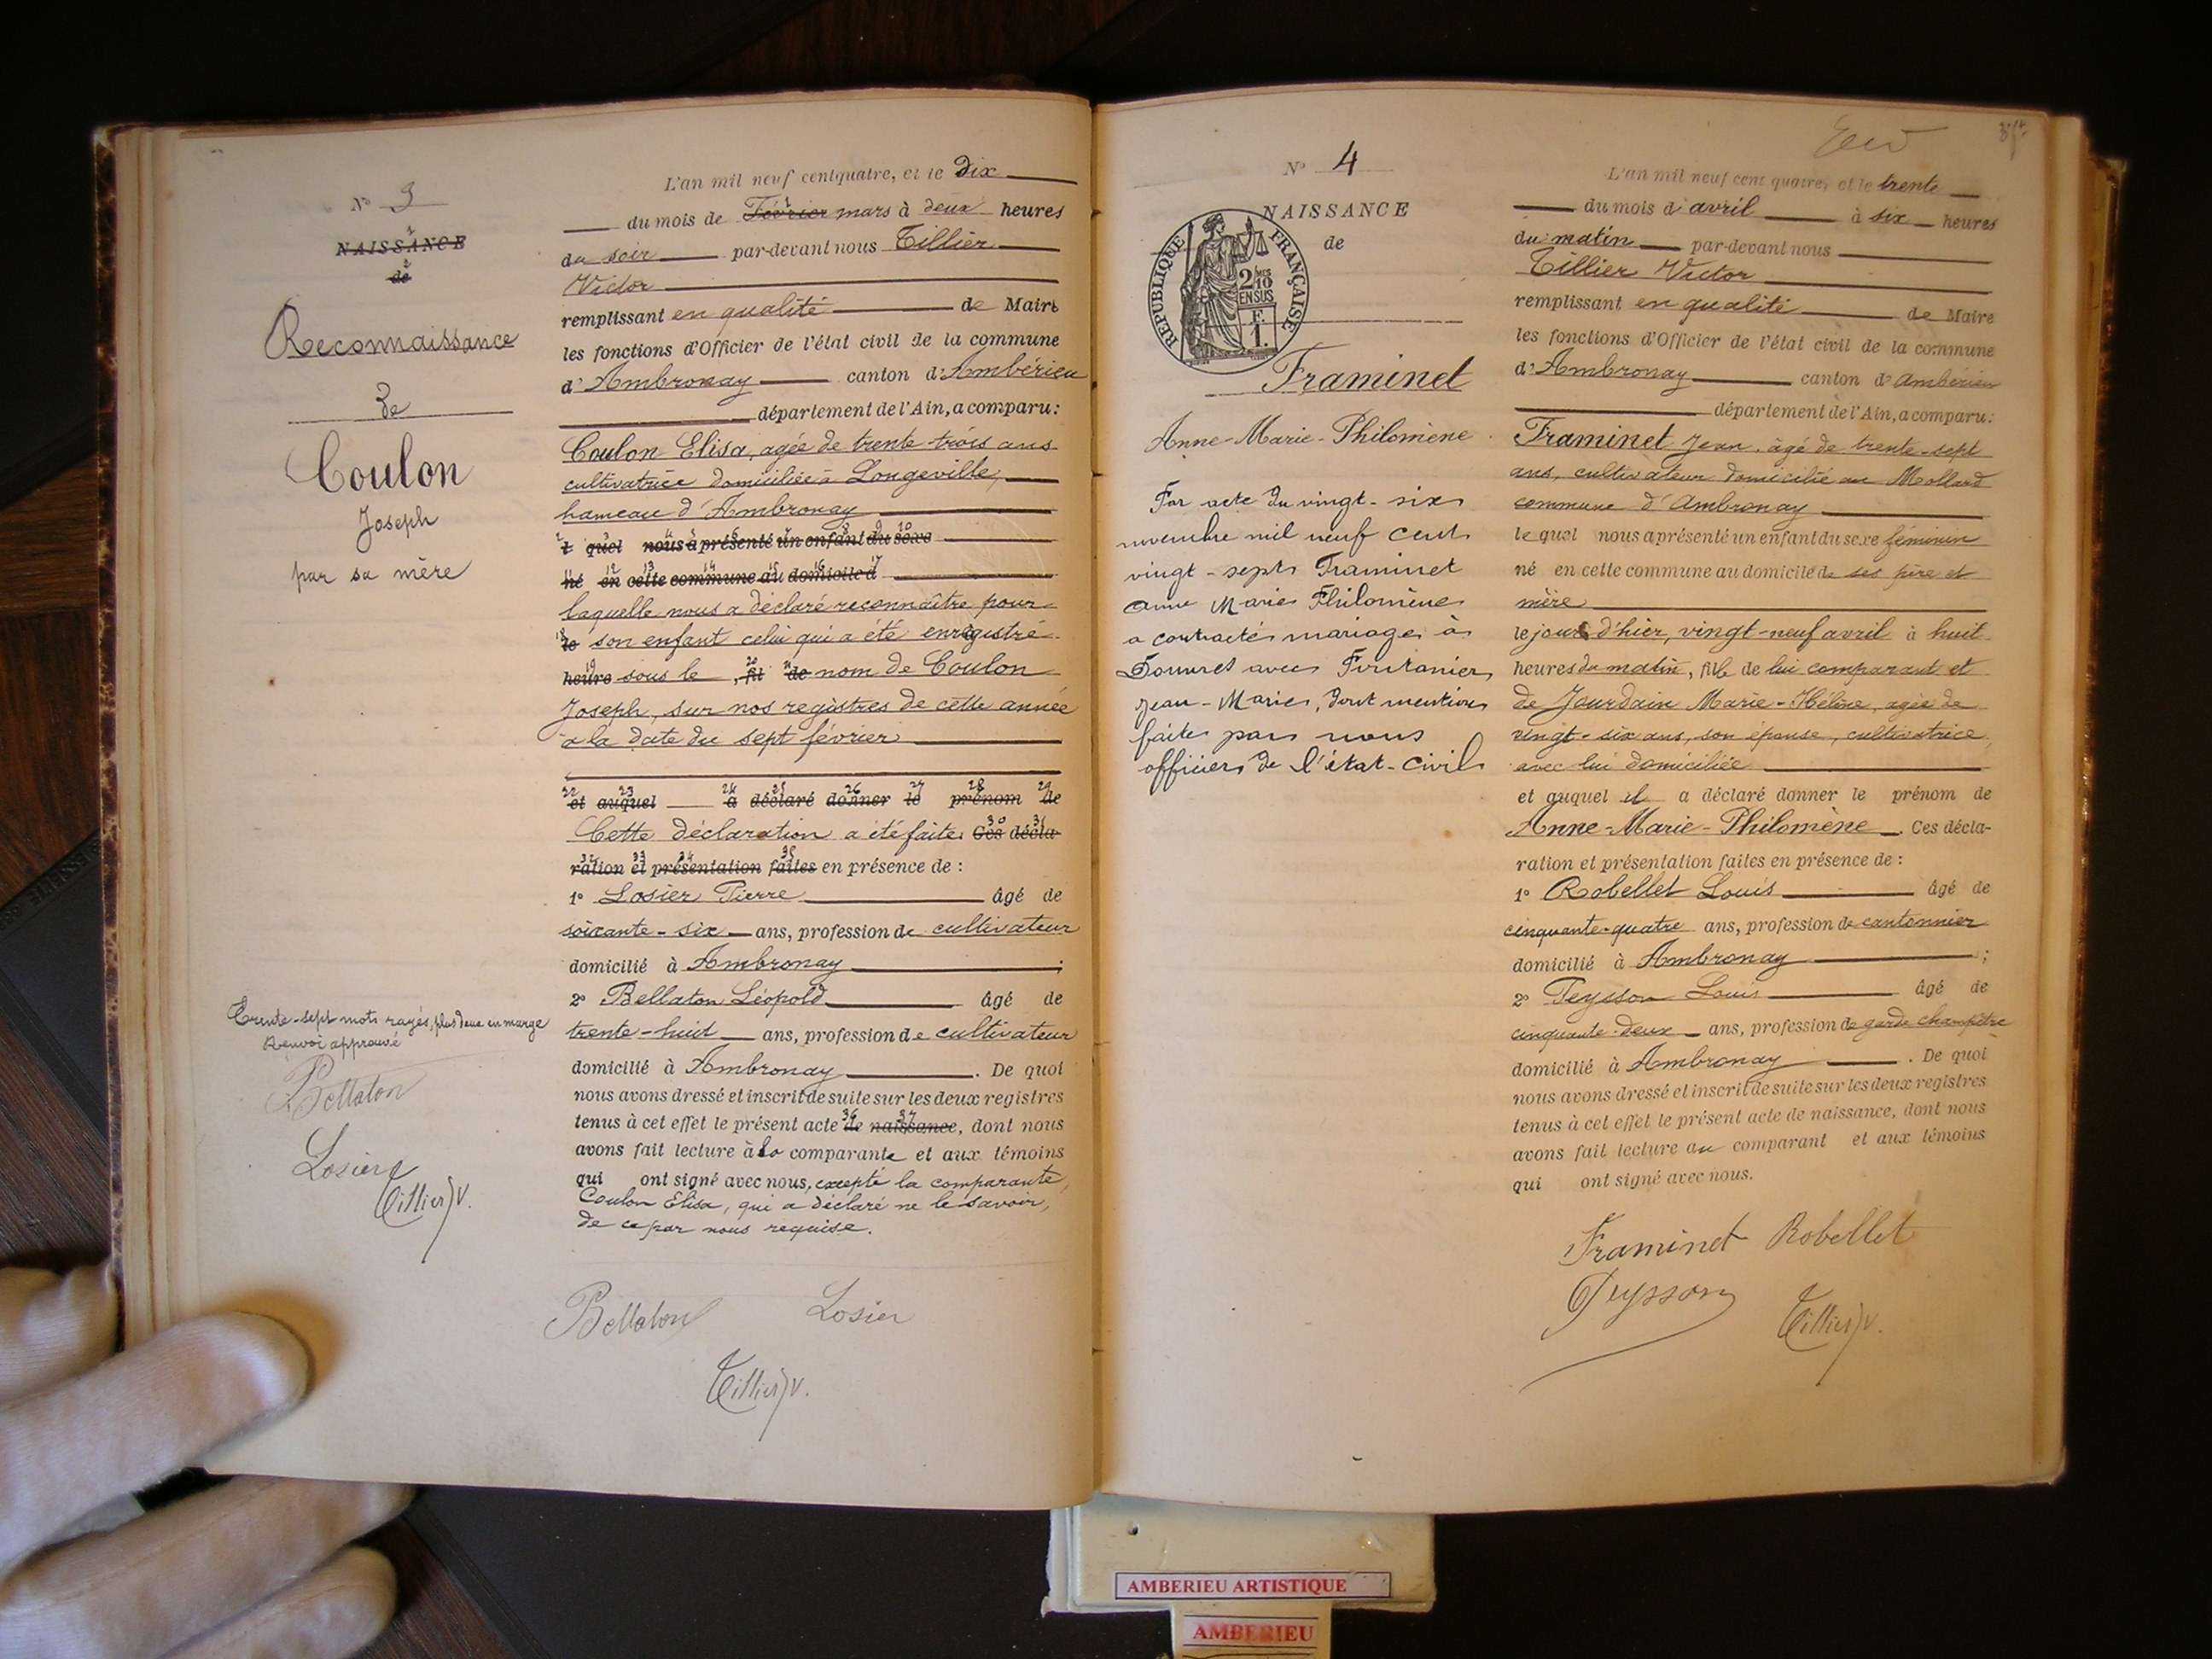 N° 3
NAISSANCE
de
Reconnaissance
de
Coulon
Joseph
par sa mère
Trente-sept mots rayés, plus deux en marge
Renvoi approuvé
Bellaton
Losier
Tillier V.
L'an mil neuf cent quatre, et le dix
du mois de Février mars à deux heures
du soir par-devant nous Tillier
Victor
remplissant en qualité de Maire
les fonctions d'Officier de l'état civil de la commune
d'Ambronay canton d'Ambérieu
département de l'Ain, a comparu :
Coulon Elisa, agée de trente trois ans
cultivatrice domiciliée à Longeville,
hameau d'Ambronay
quel nous a présenté un enfant du sexe
né en cette commune au domicile d
laquelle nous a déclaré reconnaître pour
le son enfant celui qui a été enregistré
heure sous le , fil de nom de Coulon
Joseph, sur nos registres de cette année
a la date du sept février
et auquel a déclaré donner le prénom de
Cette déclaration a été faite. Ces décla-
ration et présentation faites en présence de :
1° Losier Pierre âgé de
soixante-six ans, profession de cultivateur
domicilié à Ambronay ;
2° Bellaton Léopold âgé de
trente-huit ans, profession de cultivateur
domicilié à Ambronay . De quoi
nous avons dressé et inscrit de suite sur les deux registres
tenus à cet effet le présent acte de naissance, dont nous
avons fait lecture à la comparante et aux témoins
qui ont signé avec nous, excepté la comparante,
Coulon Elisa, qui a déclaré ne le savoir,
de ce par nous requise.
Bellaton Losier
Tillier V.
N° 4
NAISSANCE
de
RÉPUBLIQUE FRANÇAISE
2/10
EN SUS
F.
1.
Framinet
Anne-Marie-Philomène
Par acte du vingt-six
novembre mil neuf cent
vingt-sept Framinet
Anne Marie Philomène
a contracté mariage à
Douvres avec
Jean-Marie, dont mention
faite par nous
officier de l'état-civil
L'an mil neuf cent quatre, et le trente
du mois d'avril à six heures
du matin par-devant nous
Tillier Victor
remplissant en qualité de Maire
les fonctions d'Officier de l'état civil de la commune
d'Ambronay canton d'Ambérieu
département de l'Ain, a comparu :
Framinet Jean, âgé de trente-sept
ans, cultivateur domicilié au Mollard
commune d'Ambronay
lequel nous a présenté un enfant du sexe féminin
né en cette commune au domicile de ses père et
mère
le jour d'hier, vingt-neuf avril à huit
heures du matin, fille de lui comparant et
de Jourdain Marie-Hélène, agée de
vingt-six ans, son épouse, cultivatrice,
avec lui domiciliée
et auquel il a déclaré donner le prénom de
Anne-Marie-Philomène . Ces décla-
ration et présentation faites en présence de :
1° Robellet Louis âgé de
cinquante-quatre ans, profession de cantonnier
domicilié à Ambronay ;
2° Peysson Louis âgé de
cinquante-deux ans, profession de garde champêtre
domicilié à Ambronay . De quoi
nous avons dressé et inscrit de suite sur les deux registres
tenus à cet effet le présent acte de naissance, dont nous
avons fait lecture au comparant et aux témoins
qui ont signé avec nous.
Framinet Robellet
Peysson Tillier V.
AMBERIEU ARTISTIQUE
AMBERIEU